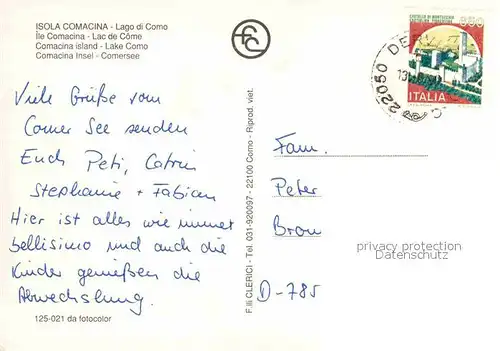 ISOLA COMACINA - Lago di Como
Île Comacina - Lac de Côme
Comacina island - Lake Como
Comacina Insel - Comersee
Viele Grüße vom
Comer See senden
Euch Peti, Catrin
Stephanie + Fabian
Hier ist alles wie immer
bellisimo und auch die
Kinder genießen die
Abwechslung.
125-021 da fotocolor
F.lli CLERICI - Tel. 031-920097 - 22100 Como - Riprod. viet.
650
ITALIA
22050 DERV
Fam.
Peter
Brom
D-785
privacy protection
Datenschutz